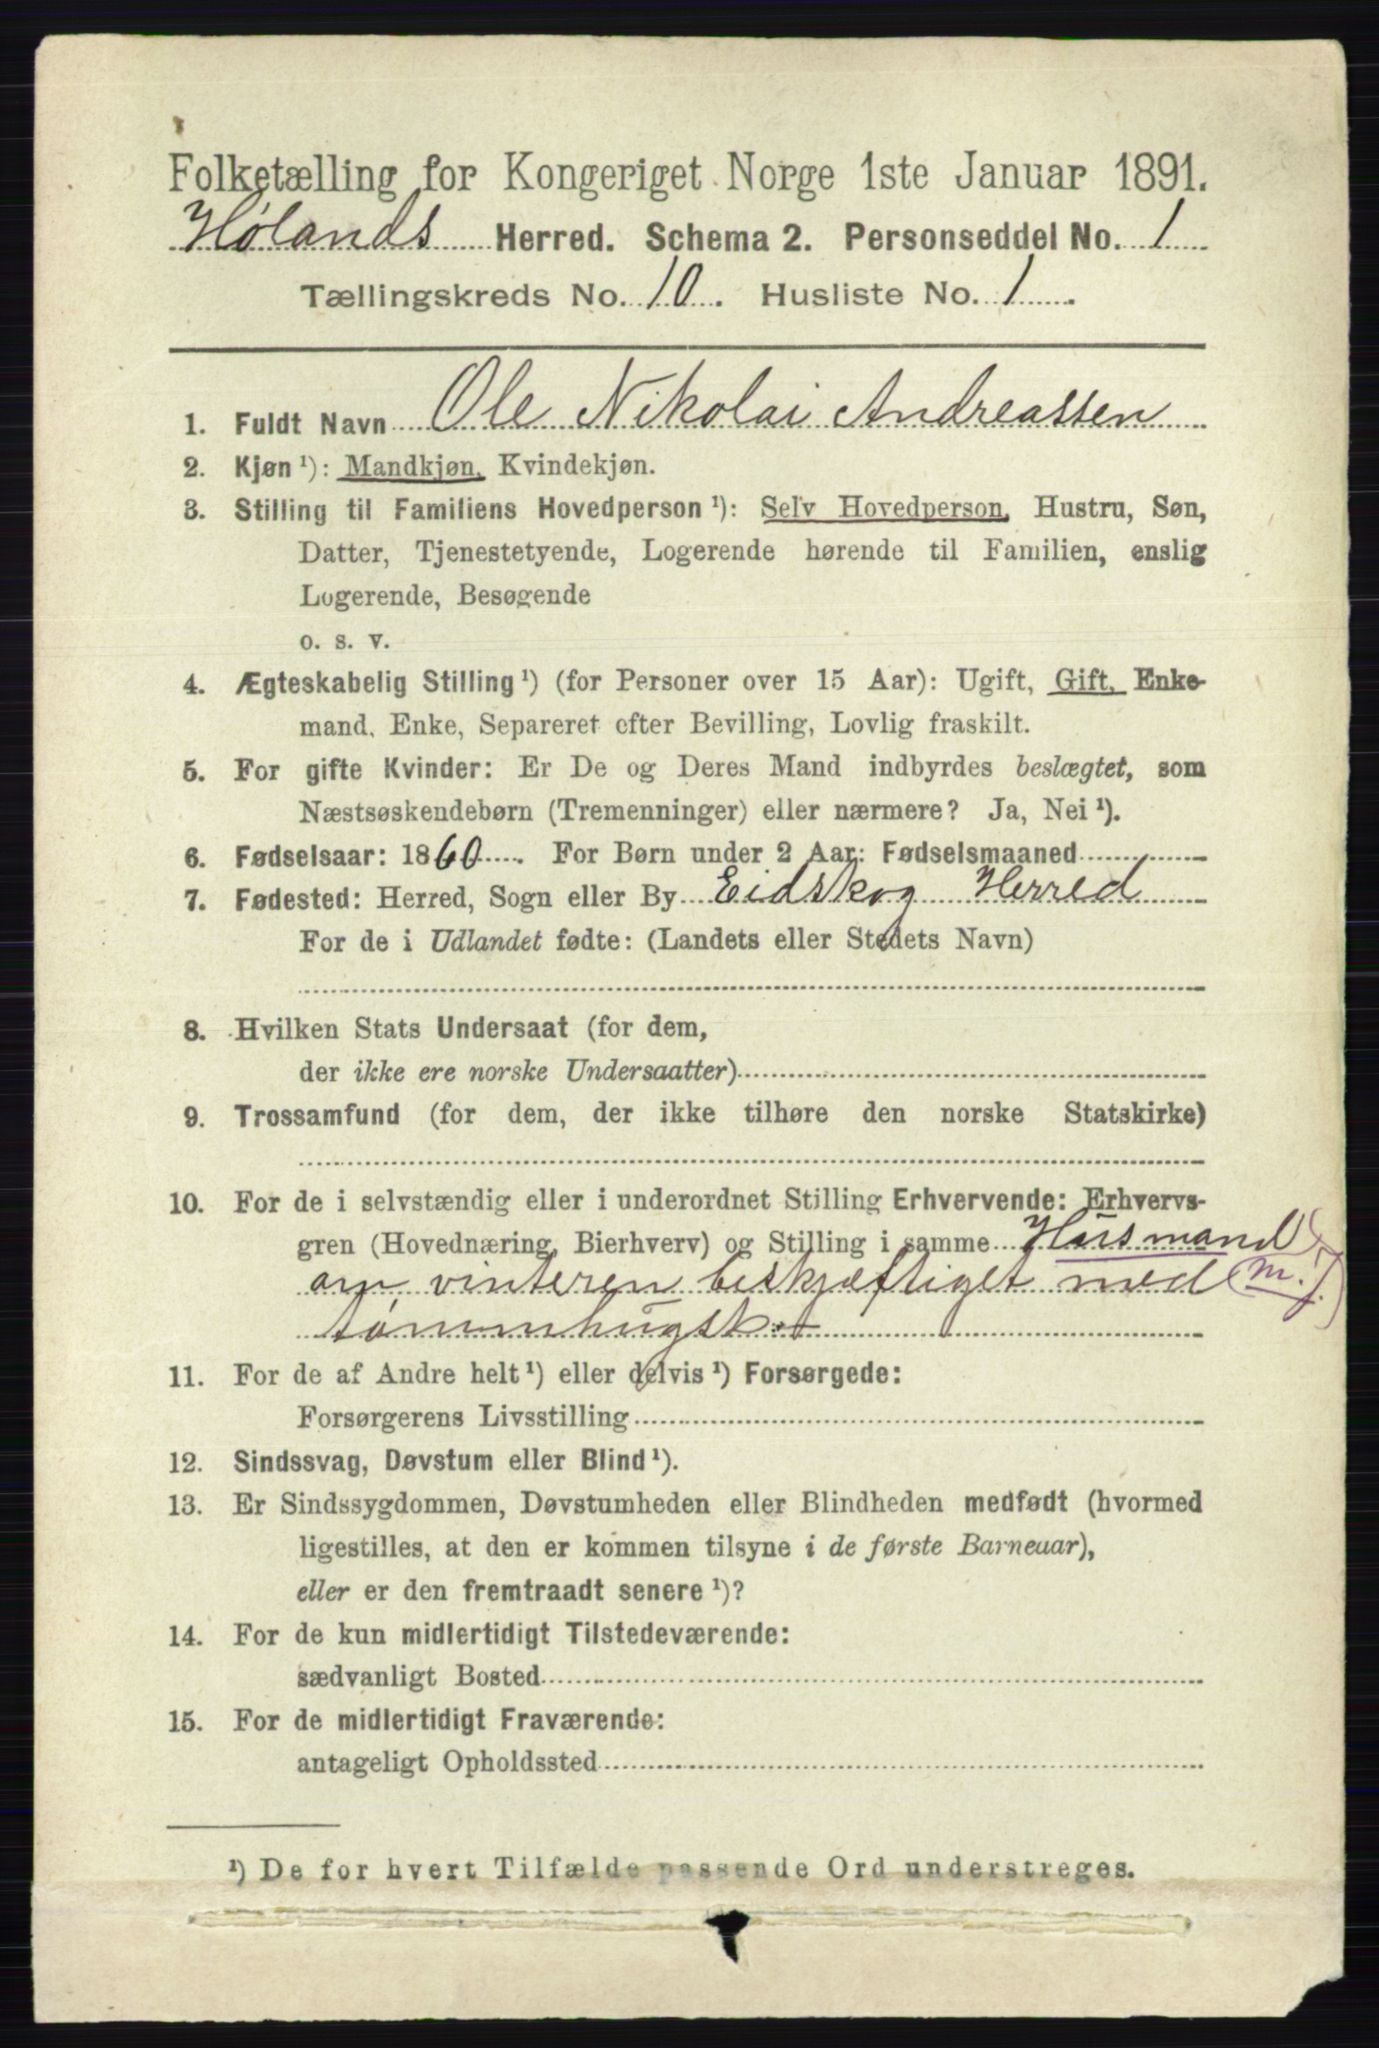 Folketælling for Kongeriget Norge 1ste Januar 1891.
Hølands Herred. Schema 2. Personseddel No. 1
Tællingskreds No. 10. Husliste No. 1
1. Fuldt Navn Ole Nikolai Andreassen
2. Kjøn ¹): Mandkjøn, Kvindekjøn.
3. Stilling til Familiens Hovedperson ¹): Selv Hovedperson, Hustru, Søn,
Datter, Tjenestetyende, Logerende hørende til Familien, enslig
Logerende, Besøgende
o. s. v.
4. Ægteskabelig Stilling ¹) (for Personer over 15 Aar): Ugift, Gift, Enke-
mand, Enke, Separeret efter Bevilling, Lovlig fraskilt.
5. For gifte Kvinder: Er De og Deres Mand indbyrdes beslægtet, som
Næstsøskendebørn (Tremenninger) eller nærmere? Ja, Nei ¹).
6. Fødselsaar: 1860. For Børn under 2 Aar: Fødselsmaaned
7. Fødested: Herred, Sogn eller By Eidskog Herred
For de i Udlandet fødte: (Landets eller Stedets Navn)
8. Hvilken Stats Undersaat (for dem,
der ikke ere norske Undersaatter)
9. Trossamfund (for dem, der ikke tilhøre den norske Statskirke)
10. For de i selvstændig eller i underordnet Stilling Erhvervende: Erhvervs-
gren (Hovednæring, Bierhverv) og Stilling i samme Husmand
om vinteren beskjæftiget med (m. j.)
tømmhugst
11. For de af Andre helt ¹) eller delvis ¹) Forsørgede:
Forsørgerens Livsstilling
12. Sindssvag, Døvstum eller Blind ¹).
13. Er Sindssygdommen, Døvstumheden eller Blindheden medfødt (hvormed
ligestilles, at den er kommen tilsyne i de første Barneaar),
eller er den fremtraadt senere ¹)?
14. For de kun midlertidigt Tilstedeværende:
sædvanligt Bosted
15. For de midlertidigt Fraværende:
antageligt Opholdssted
¹) De for hvert Tilfælde passende Ord understreges.